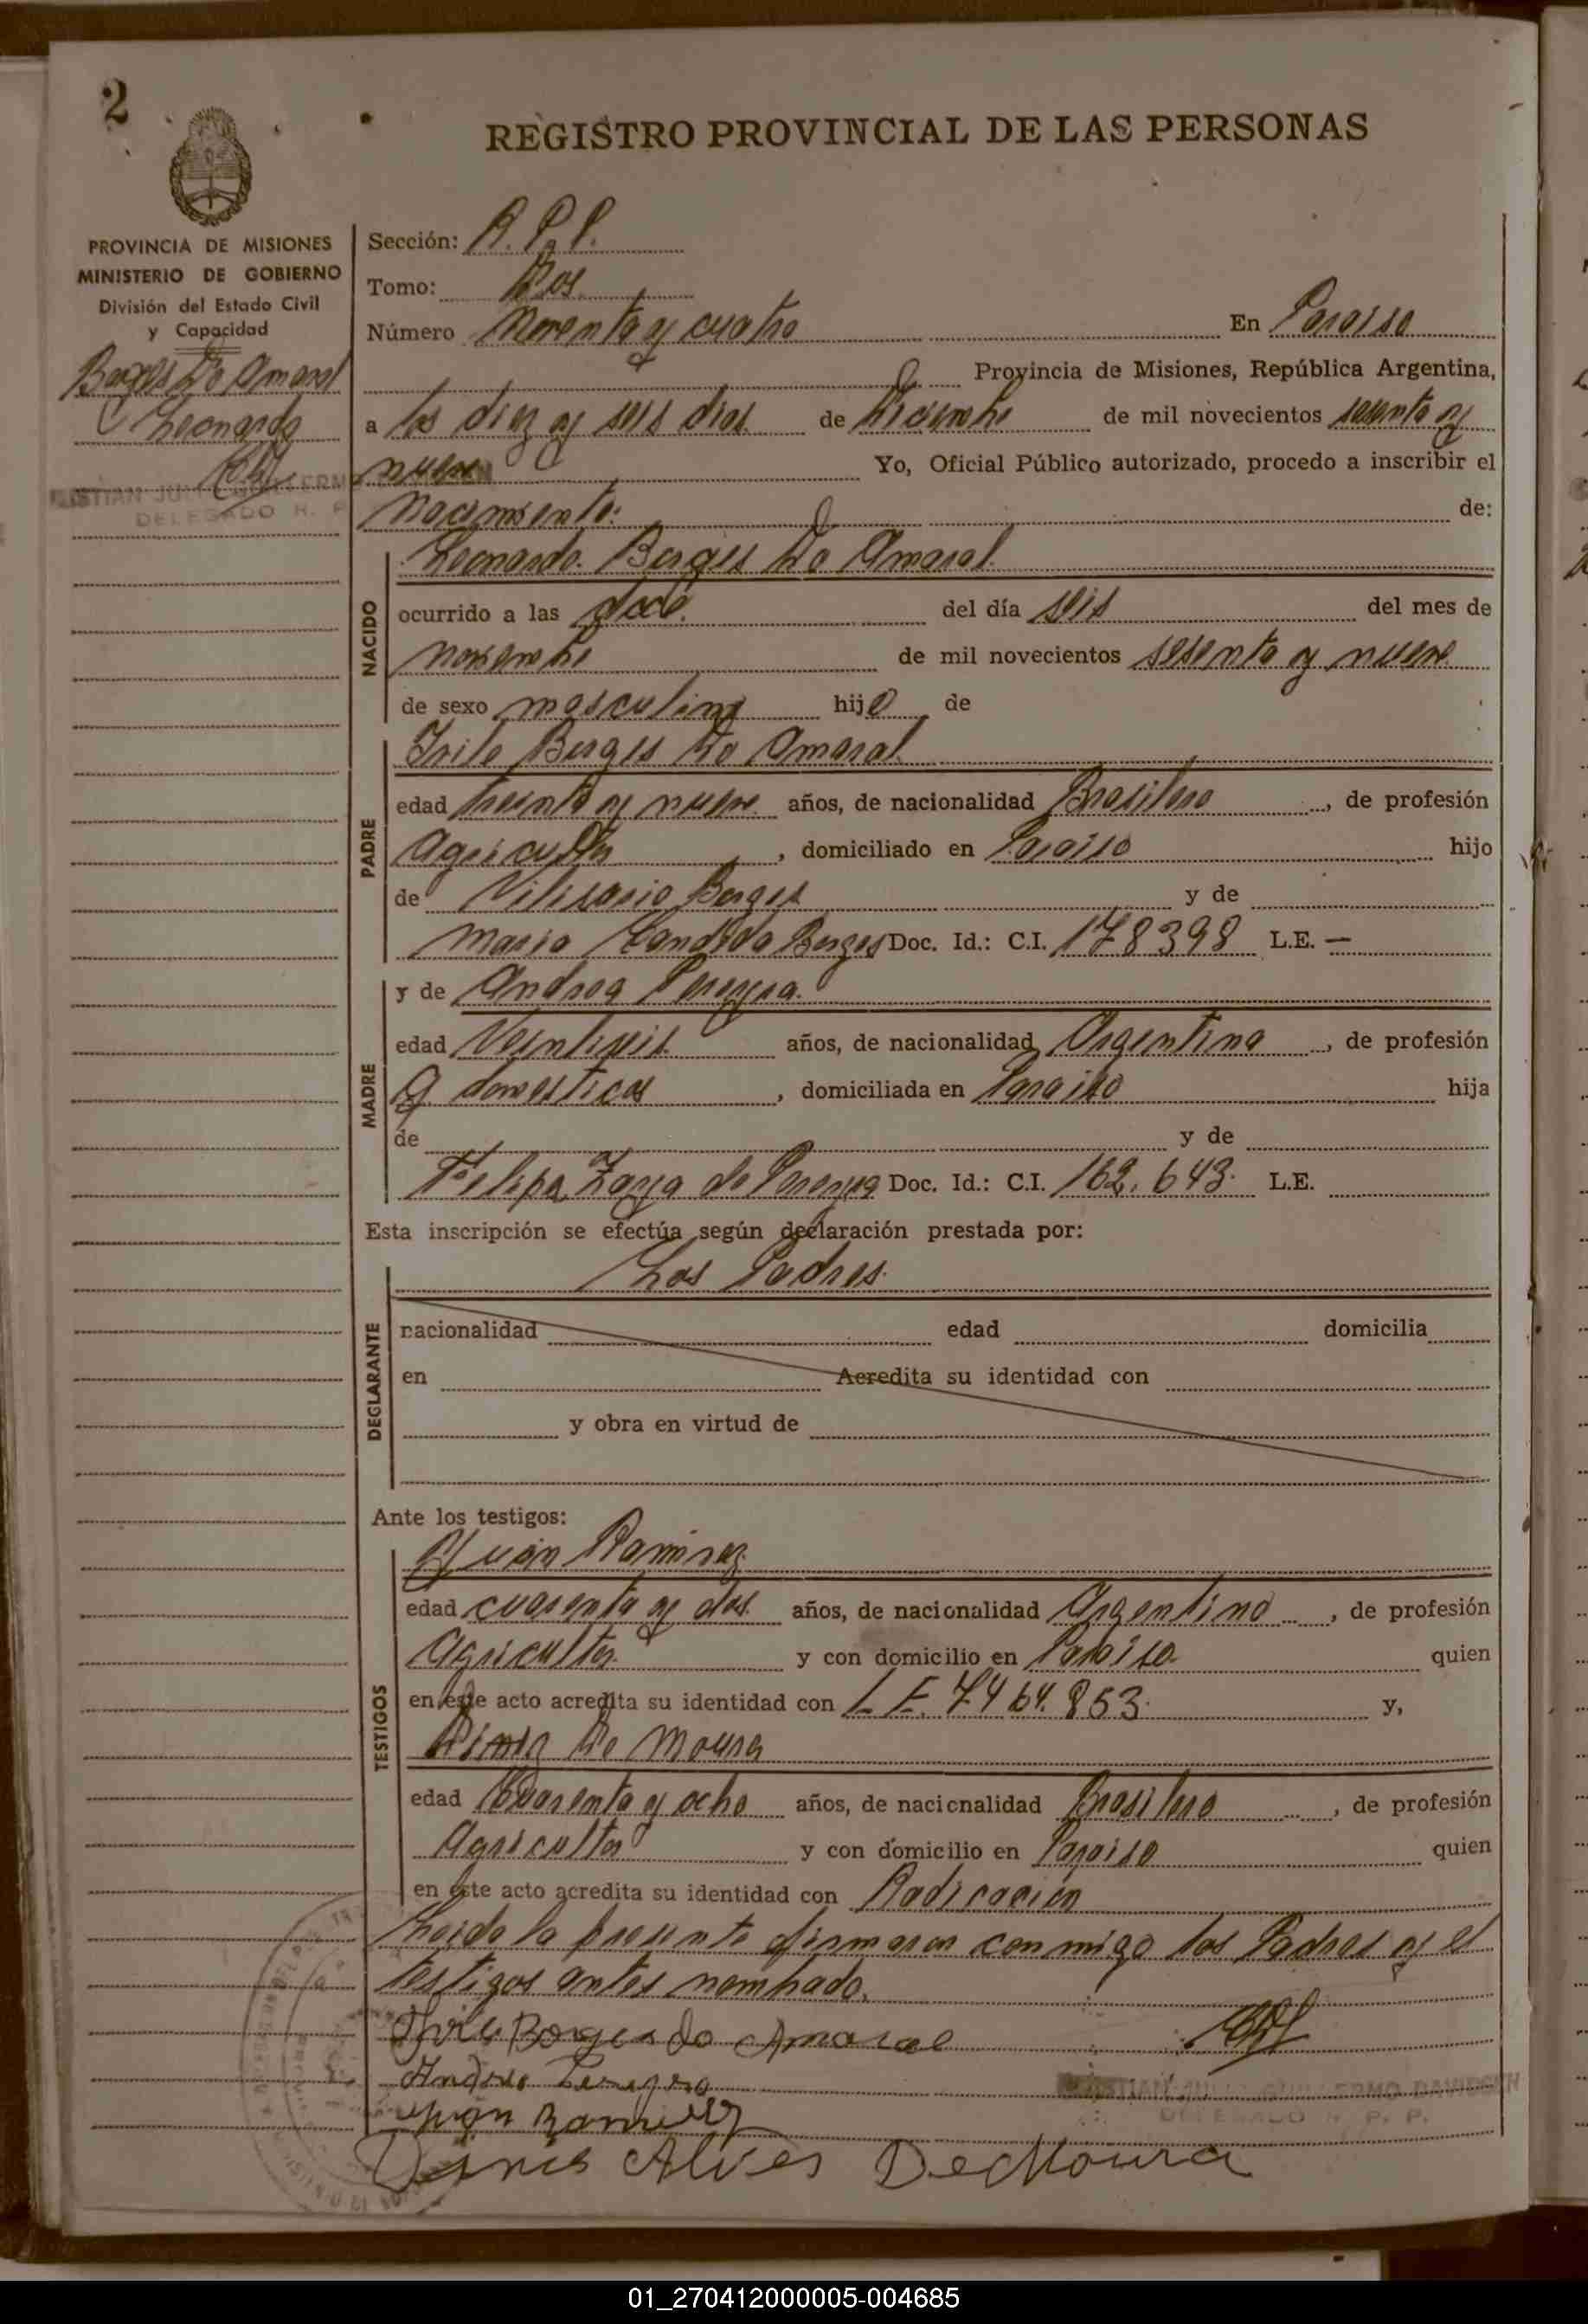 2
REGISTRO PROVINCIAL DE LAS PERSONAS
PROVINCIA DE MISIONES
MINISTERIO DE GOBIERNO
División del Estado Civil
y Capacidad
Borges Do Amaral
Leonardo
DELEGADO R. P
Sección: R. P. P.
Tomo: Dos
Número Noventa y cuatro En Paraiso
Provincia de Misiones, República Argentina,
a los diez y seis dias de Diciembre de mil novecientos sesenta y
nueve Yo, Oficial Público autorizado, procedo a inscribir el
Nacimiento: de:
NACIDO
Leonardo Borges Do Amaral
ocurrido a las doce. del día seis del mes de
Noviembre de mil novecientos sesenta y nueve
de sexo masculino hijo de
PADRE
Borges Do Amaral
edad treinta y nueve años, de nacionalidad Brasilero, de profesión
Agricultor, domiciliado en Paraiso hijo
de Vilisario Borges y de
Maria Candida Borges Doc. Id.: C.I. 178398 L.E. —
MADRE
y de Andrea Pereyra.
edad Veintiseis años, de nacionalidad Argentina, de profesión
q domesticos, domiciliada en Paraiso hija
de y de
Felipa Zaya de Pereyra Doc. Id.: C.I. 162.643. L.E.
Esta inscripción se efectúa según declaración prestada por:
DECLARANTE
Los Padres.
nacionalidad edad domicilia
en Acredita su identidad con
y obra en virtud de
Ante los testigos:
TESTIGOS
Juan Ramirez
edad cuarenta y dos años, de nacionalidad Argentino, de profesión
Agricultor y con domicilio en Paraiso quien
en este acto acredita su identidad con L E. 7464.853. y,
Dinis De Moura
edad Cuarenta y ocho años, de nacionalidad Brasilero, de profesión
Agricultor y con domicilio en Paraiso quien
en este acto acredita su identidad con Radicacion
Leida la presente firmaron conmigo los Padres y el
testigos antes nombrado.
Borges do Amaral
Andrea Pereyra
Juan Ramirez
DELEGADO R. P. P.
Dinis Alves DeMoura
01_270412000005-004685